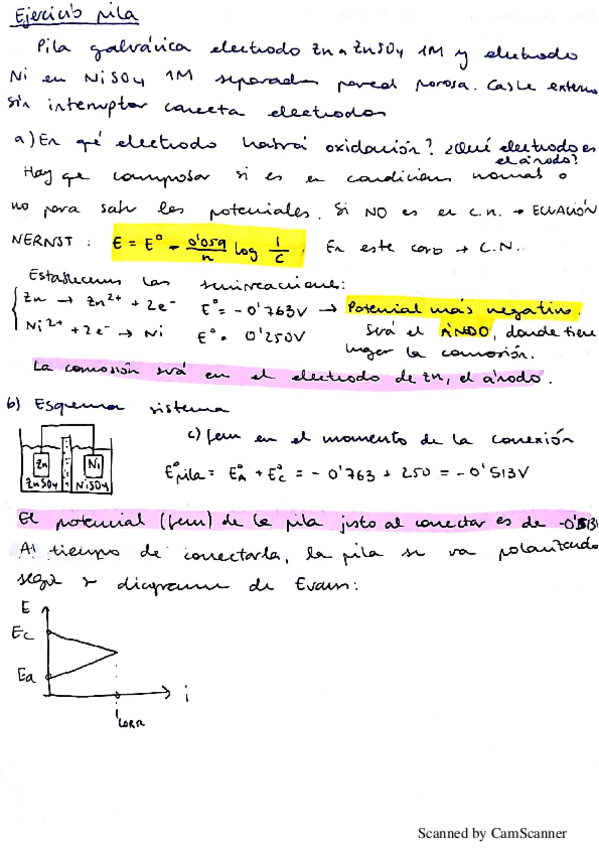 Ejercicio pila
Pila galvánica electrodo Zn en ZnSO4 1M y electrodo
Ni en NiSO4 1M separados pared porosa. Cable externo
sin interruptor conecta electrodos
a) En qé electrodo habrá oxidación? ¿Qué electrodo es
el ánodo?
Hay que comprobar si es en condiciones normales o
no para saber los potenciales. Si NO es en c.n. → ECUACIÓN
NERNST : E = E° - 0'059/n log 1/c. En este caso → C.N.
Establecemos las semireacciones:
Zn → Zn2+ + 2e- E° = -0'763V → Potencial más negativo.
Ni2+ + 2e- → Ni E° = 0'250V Será el ÁNODO, donde tiene
lugar la corrosión.
La corrosión será en el electrodo de Zn, el ánodo.
b) Esquema sistema
c) fem en el momento de la conexión
Zn Ni
ZnSO4 NiSO4
E°pila = E°A + E°C = - 0'763 + 250 = -0'513V
El potencial (fem) de la pila justo al conectar es de -0'513V
Al tiempo de conectarla, la pila se va polarizando
según diagrama de Evans:
E
Ec
Ea
i
iCORR
Scanned by CamScanner